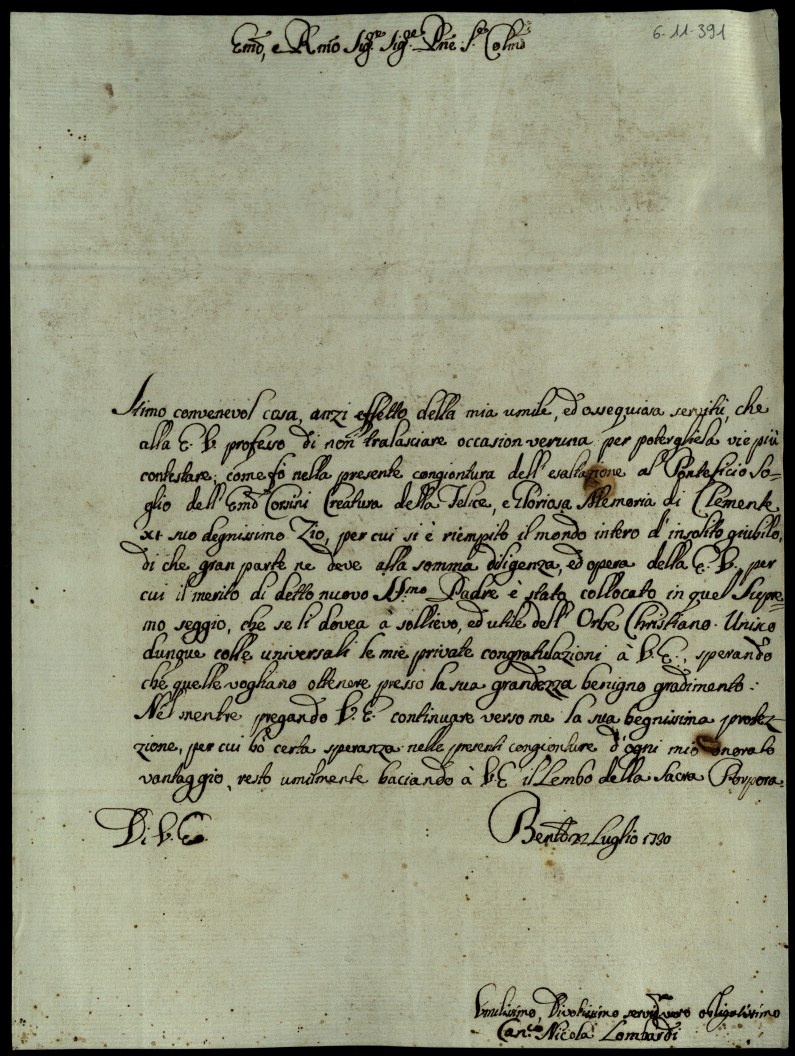 6-11-391
Emo, e Rmo Sigre Sigre Pne Colmo
Stimo convenevol cosa, anzi effetto della mia umile, ed ossequiosa servitù, che
alla E. V. professo di non tralasciare occasion veruna per potergliela vie più
contestare; come fò nella presente congiontura dell'esaltazione al Ponteficio So=
glio dell'Emo Corsini Creatura della Felice, e Gloriosa Memoria di Clemente
XI suo degnissimo Zio, per cui si è riempito il mondo intero d'insolito giubilo,
di che gran parte ne deve alla somma diligenza, ed opera della E. V., per
cui il merito di detto nuovo SS.mo Padre è stato collocato in quel Supre=
mo seggio, che se li dovea à sollievo, ed utile dell'Orbe Christiano. Unisco
dunque colle universali le mie private congratulazioni à V. E., sperando
che quelle vogliano ottenere presso la sua grandezza benigno gradimento.
Nel mentre pregando V. E. continuare verso me la sua begnissima protez=
zione, per cui hò certa speranza nelle presenti congionture d'ogni mio onorato
vantaggio, resto umilmente baciando à V. E. il Lembo della Sacra Porpora
Di V. E.
Bento 22 Luglio 1730
Umilissimo, Divotissimo servre vero obligatissimo
Canco Nicola Lombardi